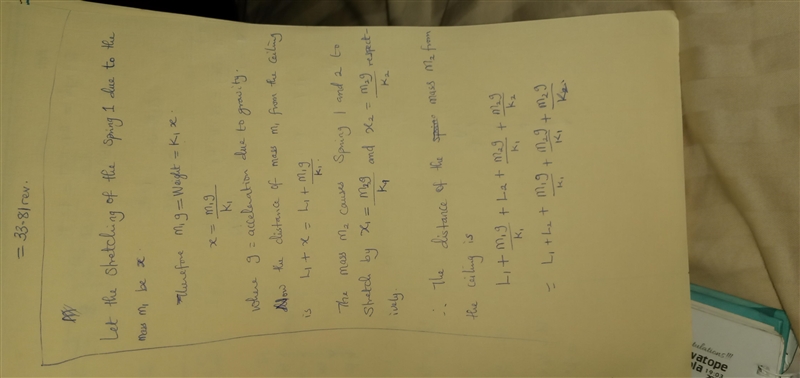 = 33.81 rev.
Let the stretching of the spring 1 due to the
mass m₁ be x.
Therefore m₁g = Weight = K₁x.
x = m₁g/K₁
where g = acceleration due to gravity.
Now the distance of mass m₁ from the ceiling
is L₁ + x = L₁ + m₁g/K₁
The mass m₂ causes spring 1 and 2 to
stretch by x₁ = m₂g/K₁ and x₂ = m₂g/K₂ respect-
ively
∴ The distance of the mass m₂ from
the ceiling is
L₁ + m₁g/K₁ + L₂ + m₂g/K₁ + m₂g/K₂
= L₁ + L₂ + m₁g/K₁ + m₂g/K₁ + m₂g/K₂.
watope